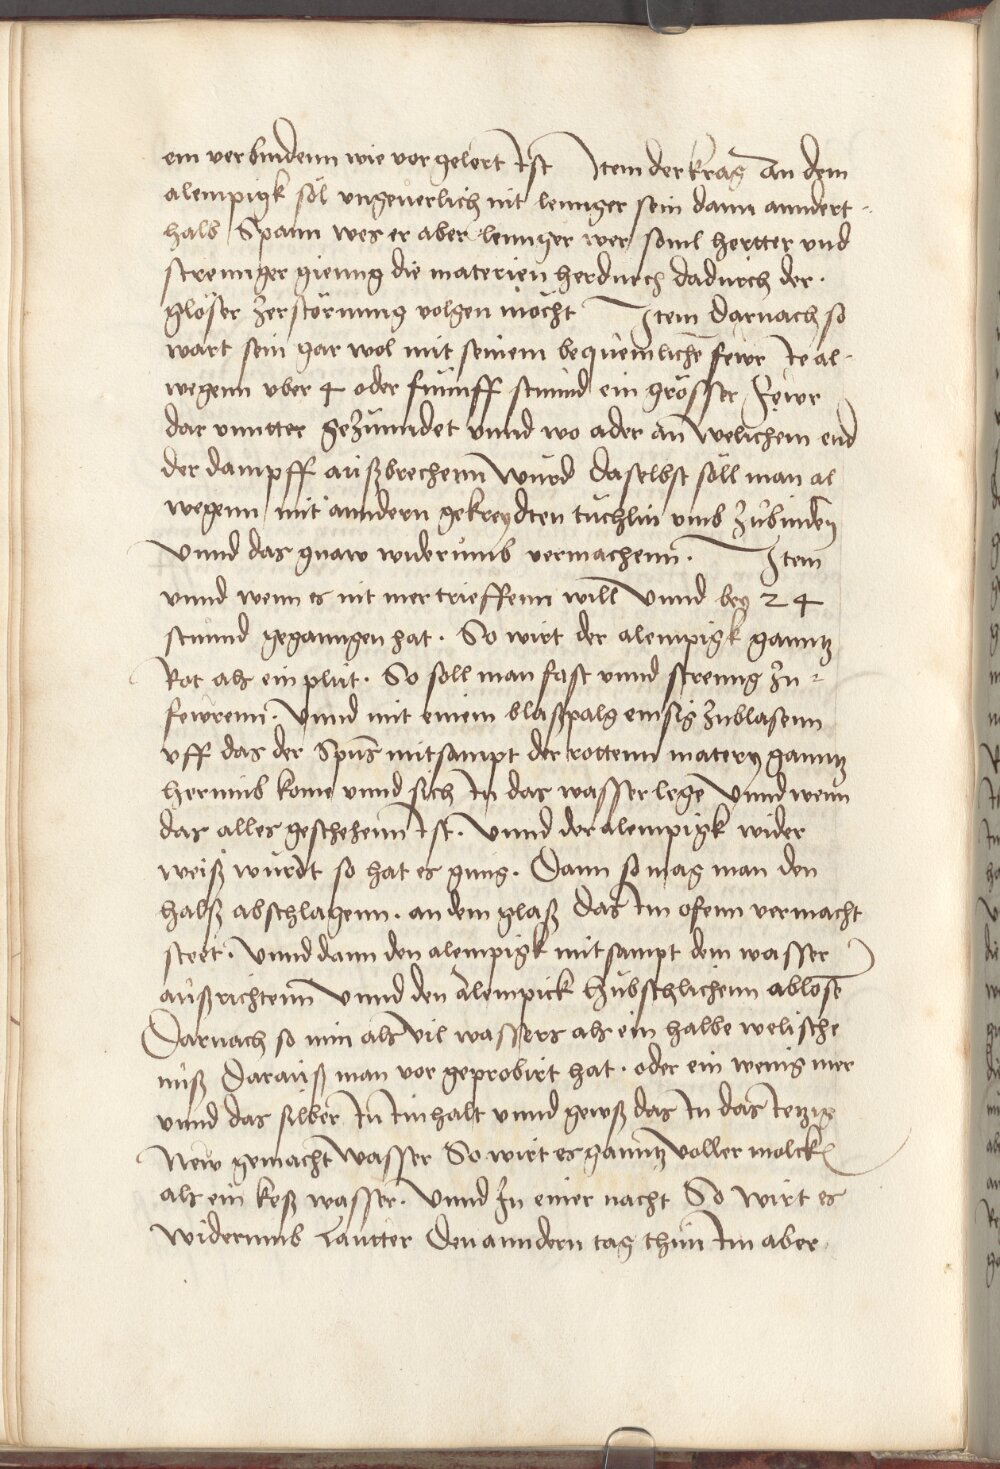 ein verbindenn wie vor gelert ist Item der krag an dem
alempigk sol ungeuerlich nit lennger sein dann anndert-
halb Spann wes er aber lennger wer souil hertter vnd
strennger gienng die materien herdurch dadurch der
glöser zerstörnung volgen möcht Item darnach so
wart sein gar wol mit seinem bequemlichē fewr ie al-
wegenn vber 4 oder fünnff stund ein grösser fewr
dar vnntter gezünndet vnnd wo ader an welichem end
der dampff außbrechenn würd daselbst söll man al
wegenn mit anndern gekreydten tüchlin vmb zubinden
vnnd das gnaw widerumb vermachenn. Item
vnnd wenn es nit mer trieffenn will vnnd bey 24
stunnd geganngen hat. So wirt der alempigk ganntz
Rot als ein plut. So soll man fast vnnd strenng zu-
fewrenn. vnnd mit einem blaßpalg emsig zublasenn
vff das der Spūs mitsampt der rottenn matery ganntz
herumb kome vnnd sich in das wasser lege vnnd wenn
das alles geschehenn ist. vnnd der alempigk wider
weiß würdt so hat es gnug. Dann so mag man den
halß abschlagenn. an dem glaß das im ofenn vermacht
steet. vnnd dann den alempigk mitsampt dem wasser
außrichtenn vnnd den alempick hübschlichenn ablöse
Darnach so nim als vil wassers als ein halbe welische
nuß Darauß man vor geprobirt hat. oder ein wenig mer
vnnd das silber in inhalt vnnd gewß das in das ietzig
New gemacht wasser So wirt es ganntz voller molcken
als ein keß wasser. vnnd In einer nacht So wirt es
widerumb Lautter Den anndern tag thun im aber